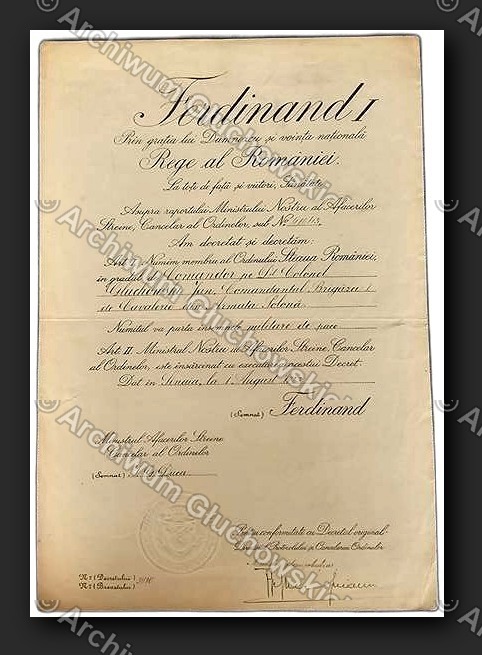 Ferdinand I
Prin grația lui Dumnezeu și voința națională
Rege al României.
La toți de față și viitori, Sănătate
Asupra raportului Ministrului Nostru al Afacerilor
Streine, Cancelar al Ordinelor, sub No.
Am decretat și decretăm:
Art. I Numim membru al Ordinului Steaua României,
în gradul de Comandor pe D-l Colonel
Gluchowski Jan, Comandantul Brigăzii I
de Cavalerie din Armata Polonă
Numitul va purta însemnele militare de pace
Art. II Ministrul Nostru al Afacerilor Streine, Cancelar
al Ordinelor, este însărcinat cu executarea acestui Decret.
Dat în Sinaia, la 1 August
(Semnat) Ferdinand
Ministrul Afacerilor Streine
Cancelar al Ordinelor
(Semnat) Duca
Pentru conformitate cu Decretul original
Directorul Protocolului și Cancelariei Ordinelor
No. (Decretului)
No. (Brevetului)
© Archiwum Gluchowskich